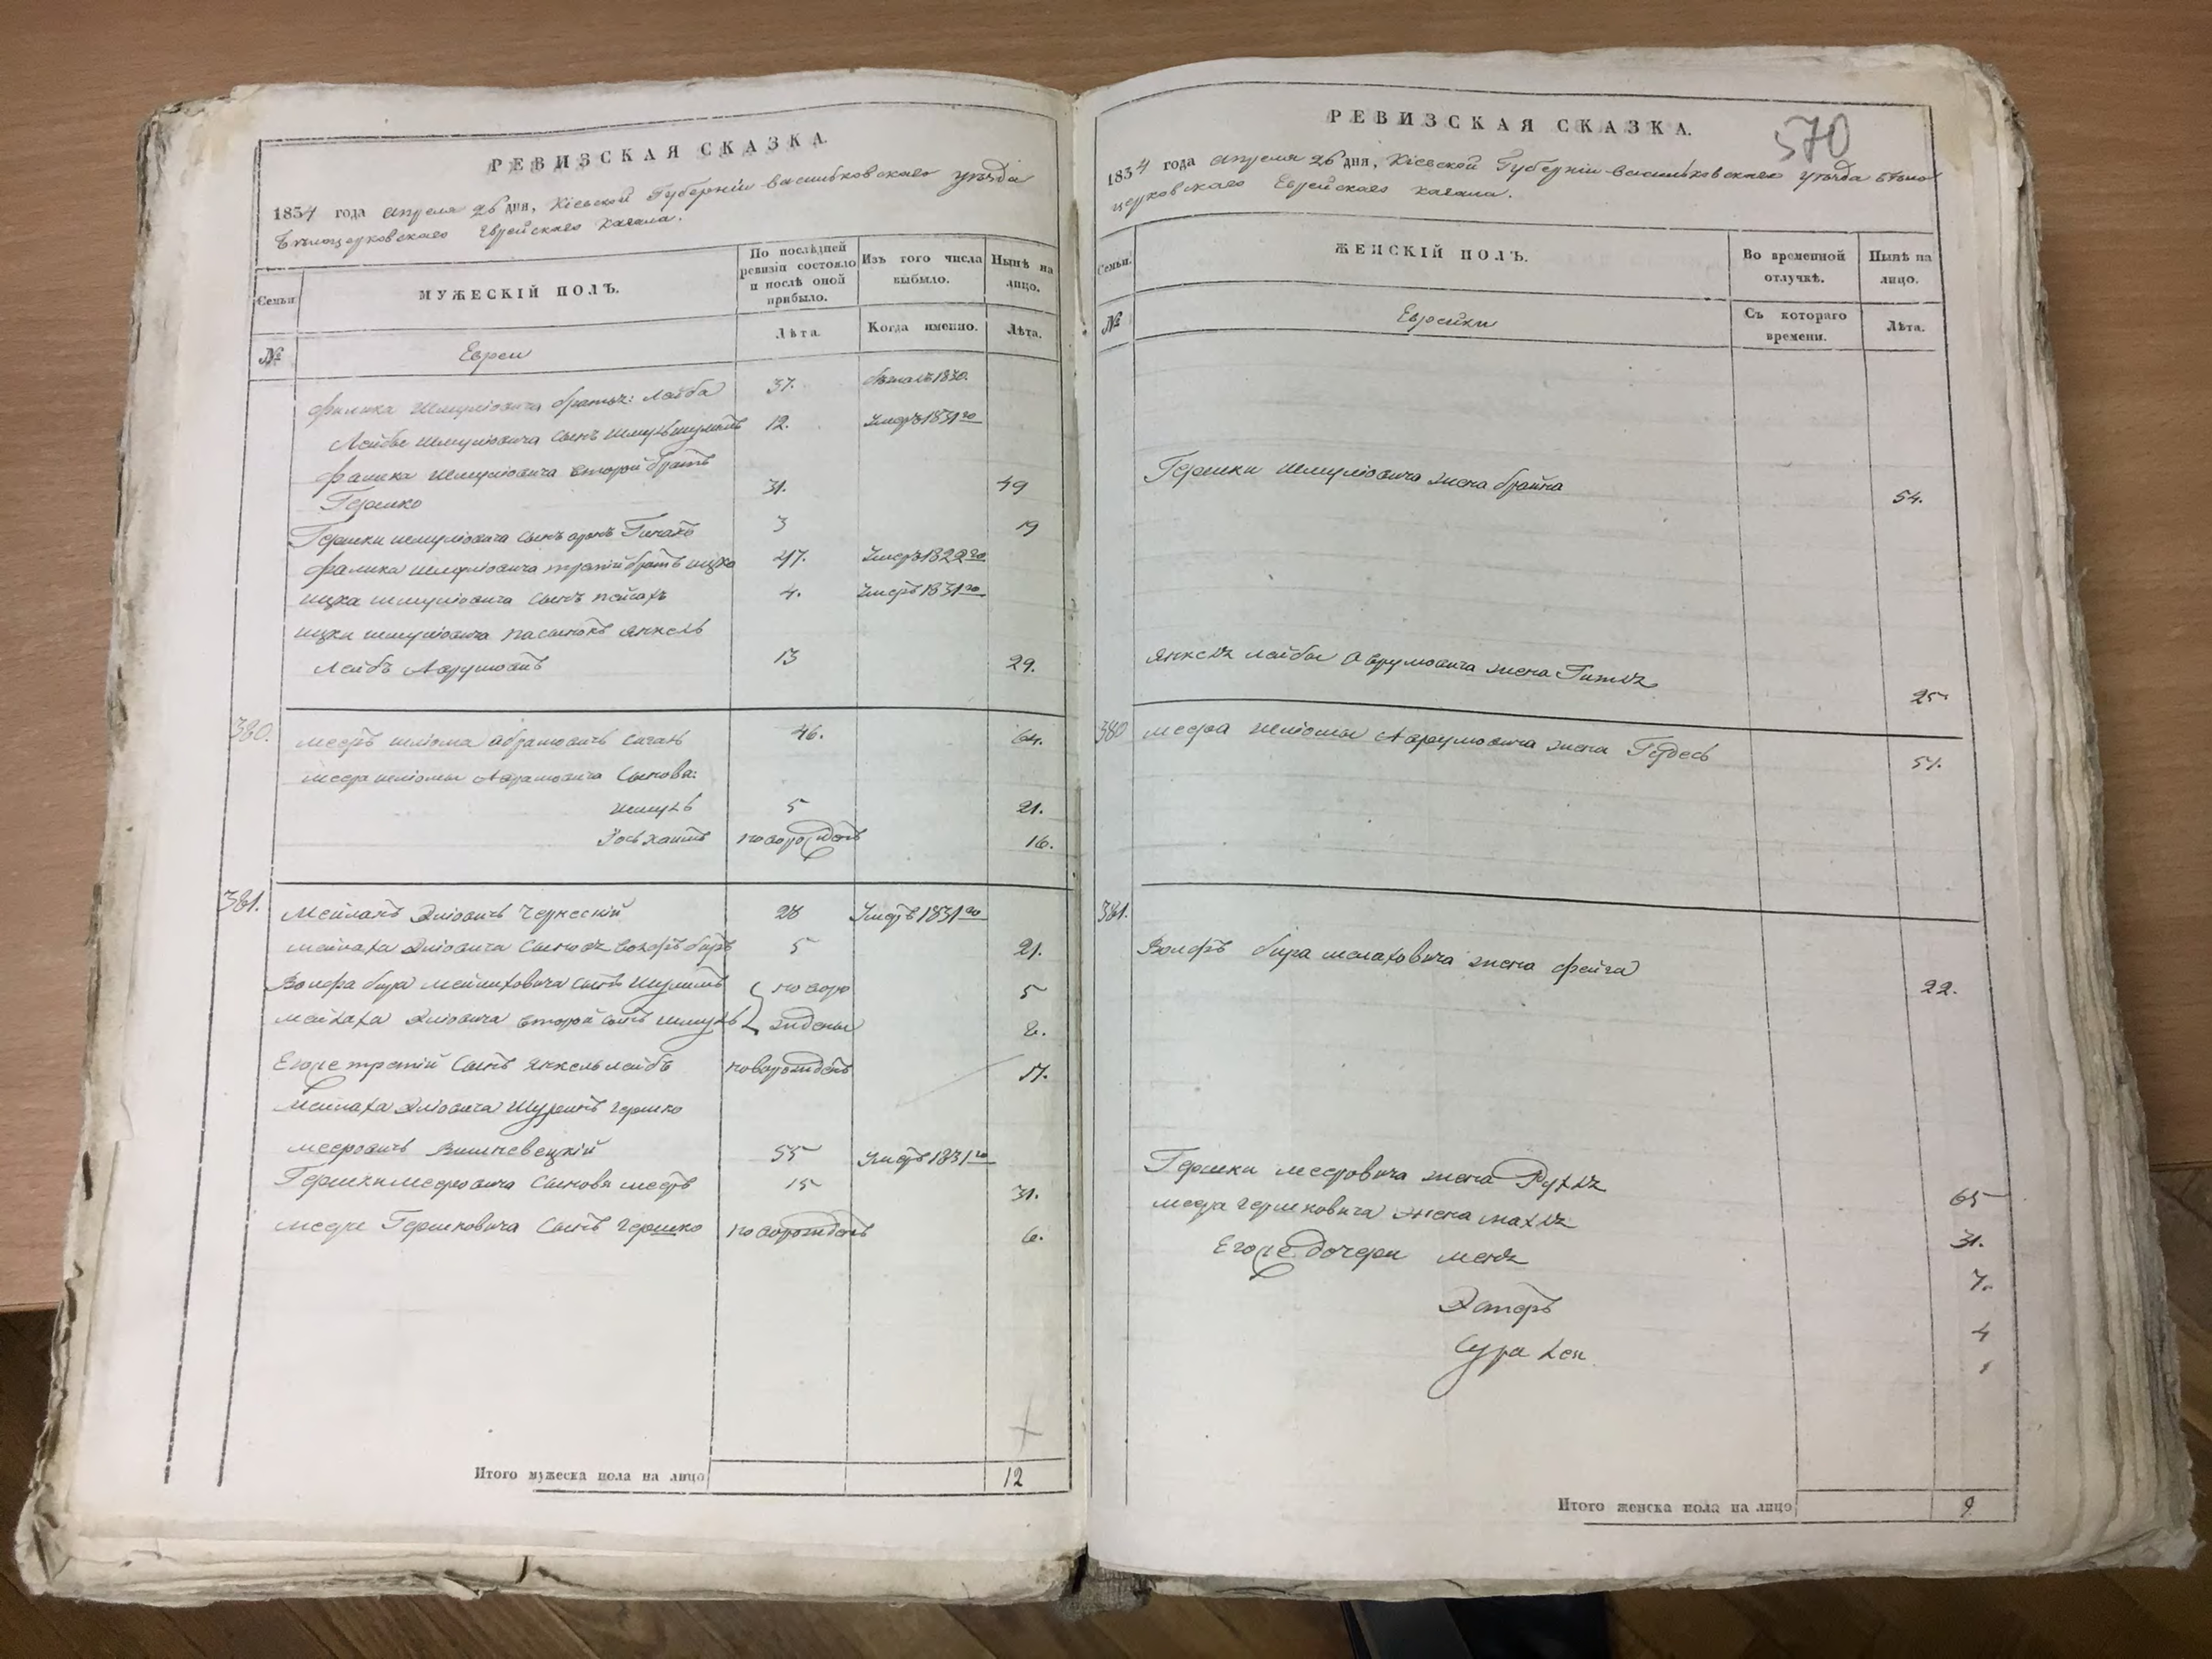 РЕВИЗСКАЯ СКАЗКА.
1834 года Апреля 26 дня, Кіевской Губерніи Васильковскаго уѣзда
Бѣлоцерковскаго Еврейскаго Кагала.
Семьи
МУЖЕСКІЙ ПОЛЪ.
По послѣдней ревизіи состояло и послѣ оной прибыло.
Изъ того числа выбыло.
Нынѣ на лицо.
№
Евреи
Лѣта.
Когда именно.
Лѣта.
Фалика Шмуліовича братья: Лейба 37. 1830.
Лейбы Шмуліовича сынъ 12. Умеръ 1831 го
Фалика Шмуліовича второй братъ
Гершко 31. 49
Гершки Шмуліовича сынъ 3 19
Фалика Шмуліовича третій братъ Ицко 47. Умеръ 1822 го
Ицка Шмуліовича сынъ Пейсахъ 4. Умеръ 1831 го
Ицки Шмуліовича пасынокъ Янкель
Лейбъ Аврумовичъ 13 29.
380. Мееръ Шлёма Абрамовичъ 46. 64.
Меера Шлёмы Абрамовича сыновья:
Шмуль 5 21.
Іось Хаимъ новорожденъ 16.
381. Мейлахъ Эліовичъ Черкескій 28 Умеръ 1831 го
Мейлаха Эліовича сыновья Вольфъ Биръ 5 21.
Вольфа Бира Мейлиховича сынъ Шулимъ новоро 5
Мейлаха Эліовича второй сынъ Шмуль ждены
Его же третій сынъ Янкель Лейбъ новорожденъ 17.
Мейлаха Эліовича шуринъ Гершко
Мееровичъ Вишневецкій 55 Умеръ 1831 го
Гершки Мееровича сыновья Мееръ 15 31.
Меера Гершковича сынъ Гершко новорожденъ 6.
Итого мужеска пола на лицо 12
570
РЕВИЗСКАЯ СКАЗКА.
1834 года Апреля 26 дня, Кіевской Губерніи Васильковскаго уѣзда Бѣло
церковскаго Еврейскаго Кагала.
Семьи.
ЖЕНСКІЙ ПОЛЪ.
Во временной отлучкѣ.
Нынѣ на лицо.
№
Еврейки
Съ котораго времени.
Лѣта.
Гершки Шмуліовича жена Брайна 54.
Янкеля Лейбы Аврумовича жена Гитля 25
380 Меера Шлёмы Аврумовича жена 51.
381.
Вольфъ Бира Мелаховича жена Фейга 22.
Гершки Мееровича жена Рухля 65
Меера Гершковича жена Махля 31.
Его же дочери Меня 7.
Эстеръ 4
Сура Хая 1
Итого женска пола на лицо 9